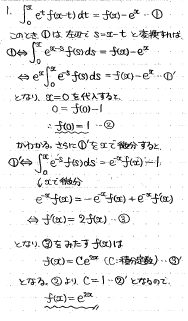 1. ∫₀ˣ eᵗ f(x-t) dt = f(x) - eˣ …①
このとき①は左辺で s=x-t と変換すれば、
①⇔ ∫₀ˣ e^{x-s} f(s) ds = f(x) - eˣ
⇔ eˣ ∫₀ˣ e^{-s} f(s) ds = f(x) - eˣ …①'
となり、x=0を代入すると、
0 = f(0) - 1
∴ f(0) = 1 …②
がわかる。さらに①'をxで微分すると、
①'⇔ ∫₀ˣ e^{-s} f(s) ds = e^{-x} f(x) - 1
xで微分
e^{-x} f(x) = -e^{-x} f(x) + e^{-x} f'(x)
⇔ f'(x) = 2f(x) …③
となり、③をみたすf(x)は
f(x) = Ce^{2x} (C:積分定数) …③'
となる。②より C=1 …②' となるので、
f(x) = e^{2x}